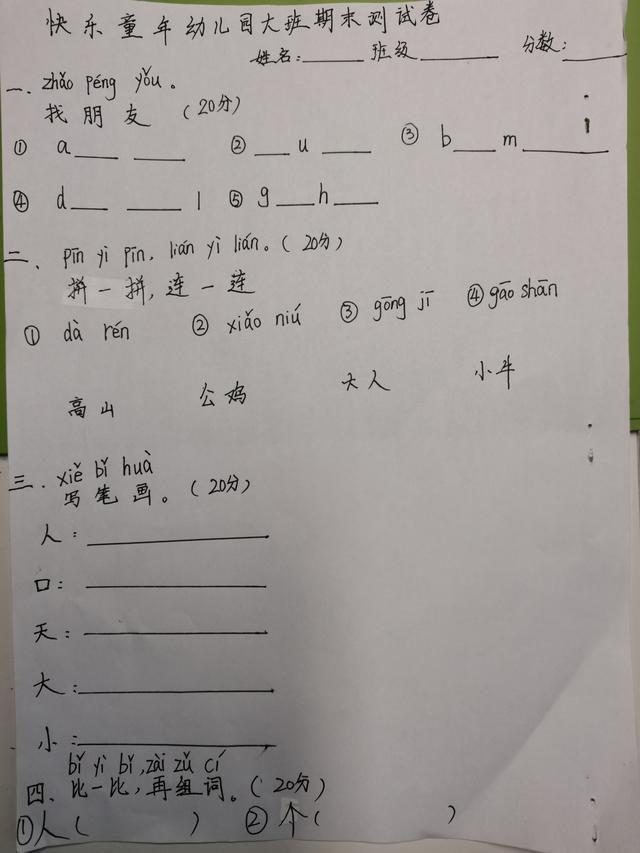 快乐童年幼儿园大班期末测试卷
姓名:______ 班级________ 分数:______
一、zhǎo péng yǒu。
找朋友 (20分)
① a____ ____ ② ____ u ____ ③ b____ m________
④ d____ ____ l ⑤ g____ h____
二、pīn yì pīn, lián yì lián。(20分)
拼一拼,连一连
① dà rén ② xiǎo niú ③ gōng jī ④ gāo shān
高山 公鸡 大人 小牛
三.xiě bǐ huà
写笔画。(20分)
人:________
口:________
天:________
大:________
小:________
bǐ yì bǐ,zài zǔ cí
四、比一比,再组词。(20分)
①人( ) ②个( )